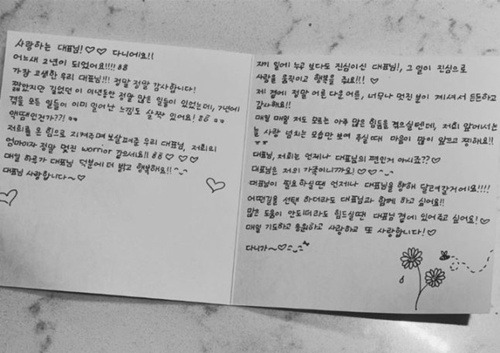 사랑하는 대표님! ♡♡ 다니에요!!
어느새 2년이 되었어요!!!! 88
가장 고생한 우리 대표님!!! 정말 정말 감사합니다!
짧았지만 길었던 이 이년동안 정말 많은 일들이 있었는데, 7년에
겪을 모든 일들이 이미 일어난 느낌도 살짝 있어요! 88
액땜인건가??!
저희를 온 힘으로 지켜주며 보살펴준 우리 대표님, 저희의
엄마이자 정말 멋진 worrior 같으세요!! 88 ♡♡♡
매일 하루가 대표님 덕분에 더 밝고 행복해요!! ^_^
대표님 사랑합니다~♡
제 일에 누구 보다도 진심이신 대표님!, 그 일이 진심으로
사람을 움직이고 행복을 줘요!!:)
제 곁에 정말 어른 다운 어른, 너무나 멋진 분이 계셔서 든든하고
감사해요!!
매일 매일 저도 모르는 아주 많은 힘듦을 겪으실텐데, 저희 앞에서는
늘 사랑 넘치는 모습만 보여 주실 때 마음이 많이 아프고 찡해요!!
대표님, 저희는 언제나 대표님의 편인거 아시죠??♡
대표님은 저의 가족이니까요!♡♡^_^
대표님이 필요하실때 언제나 대표님을 향해 달려갈거에요!!!!
어떤길을 선택 하더라도 대표님과 함께 하고 싶어요!!
많은 도움이 안되더라도 힘드실때 대표님 곁에 있어주고 싶어요!♡
매일 기도하고 응원하고 사랑하고 또 사랑합니다!♡
다니가~♡^_^